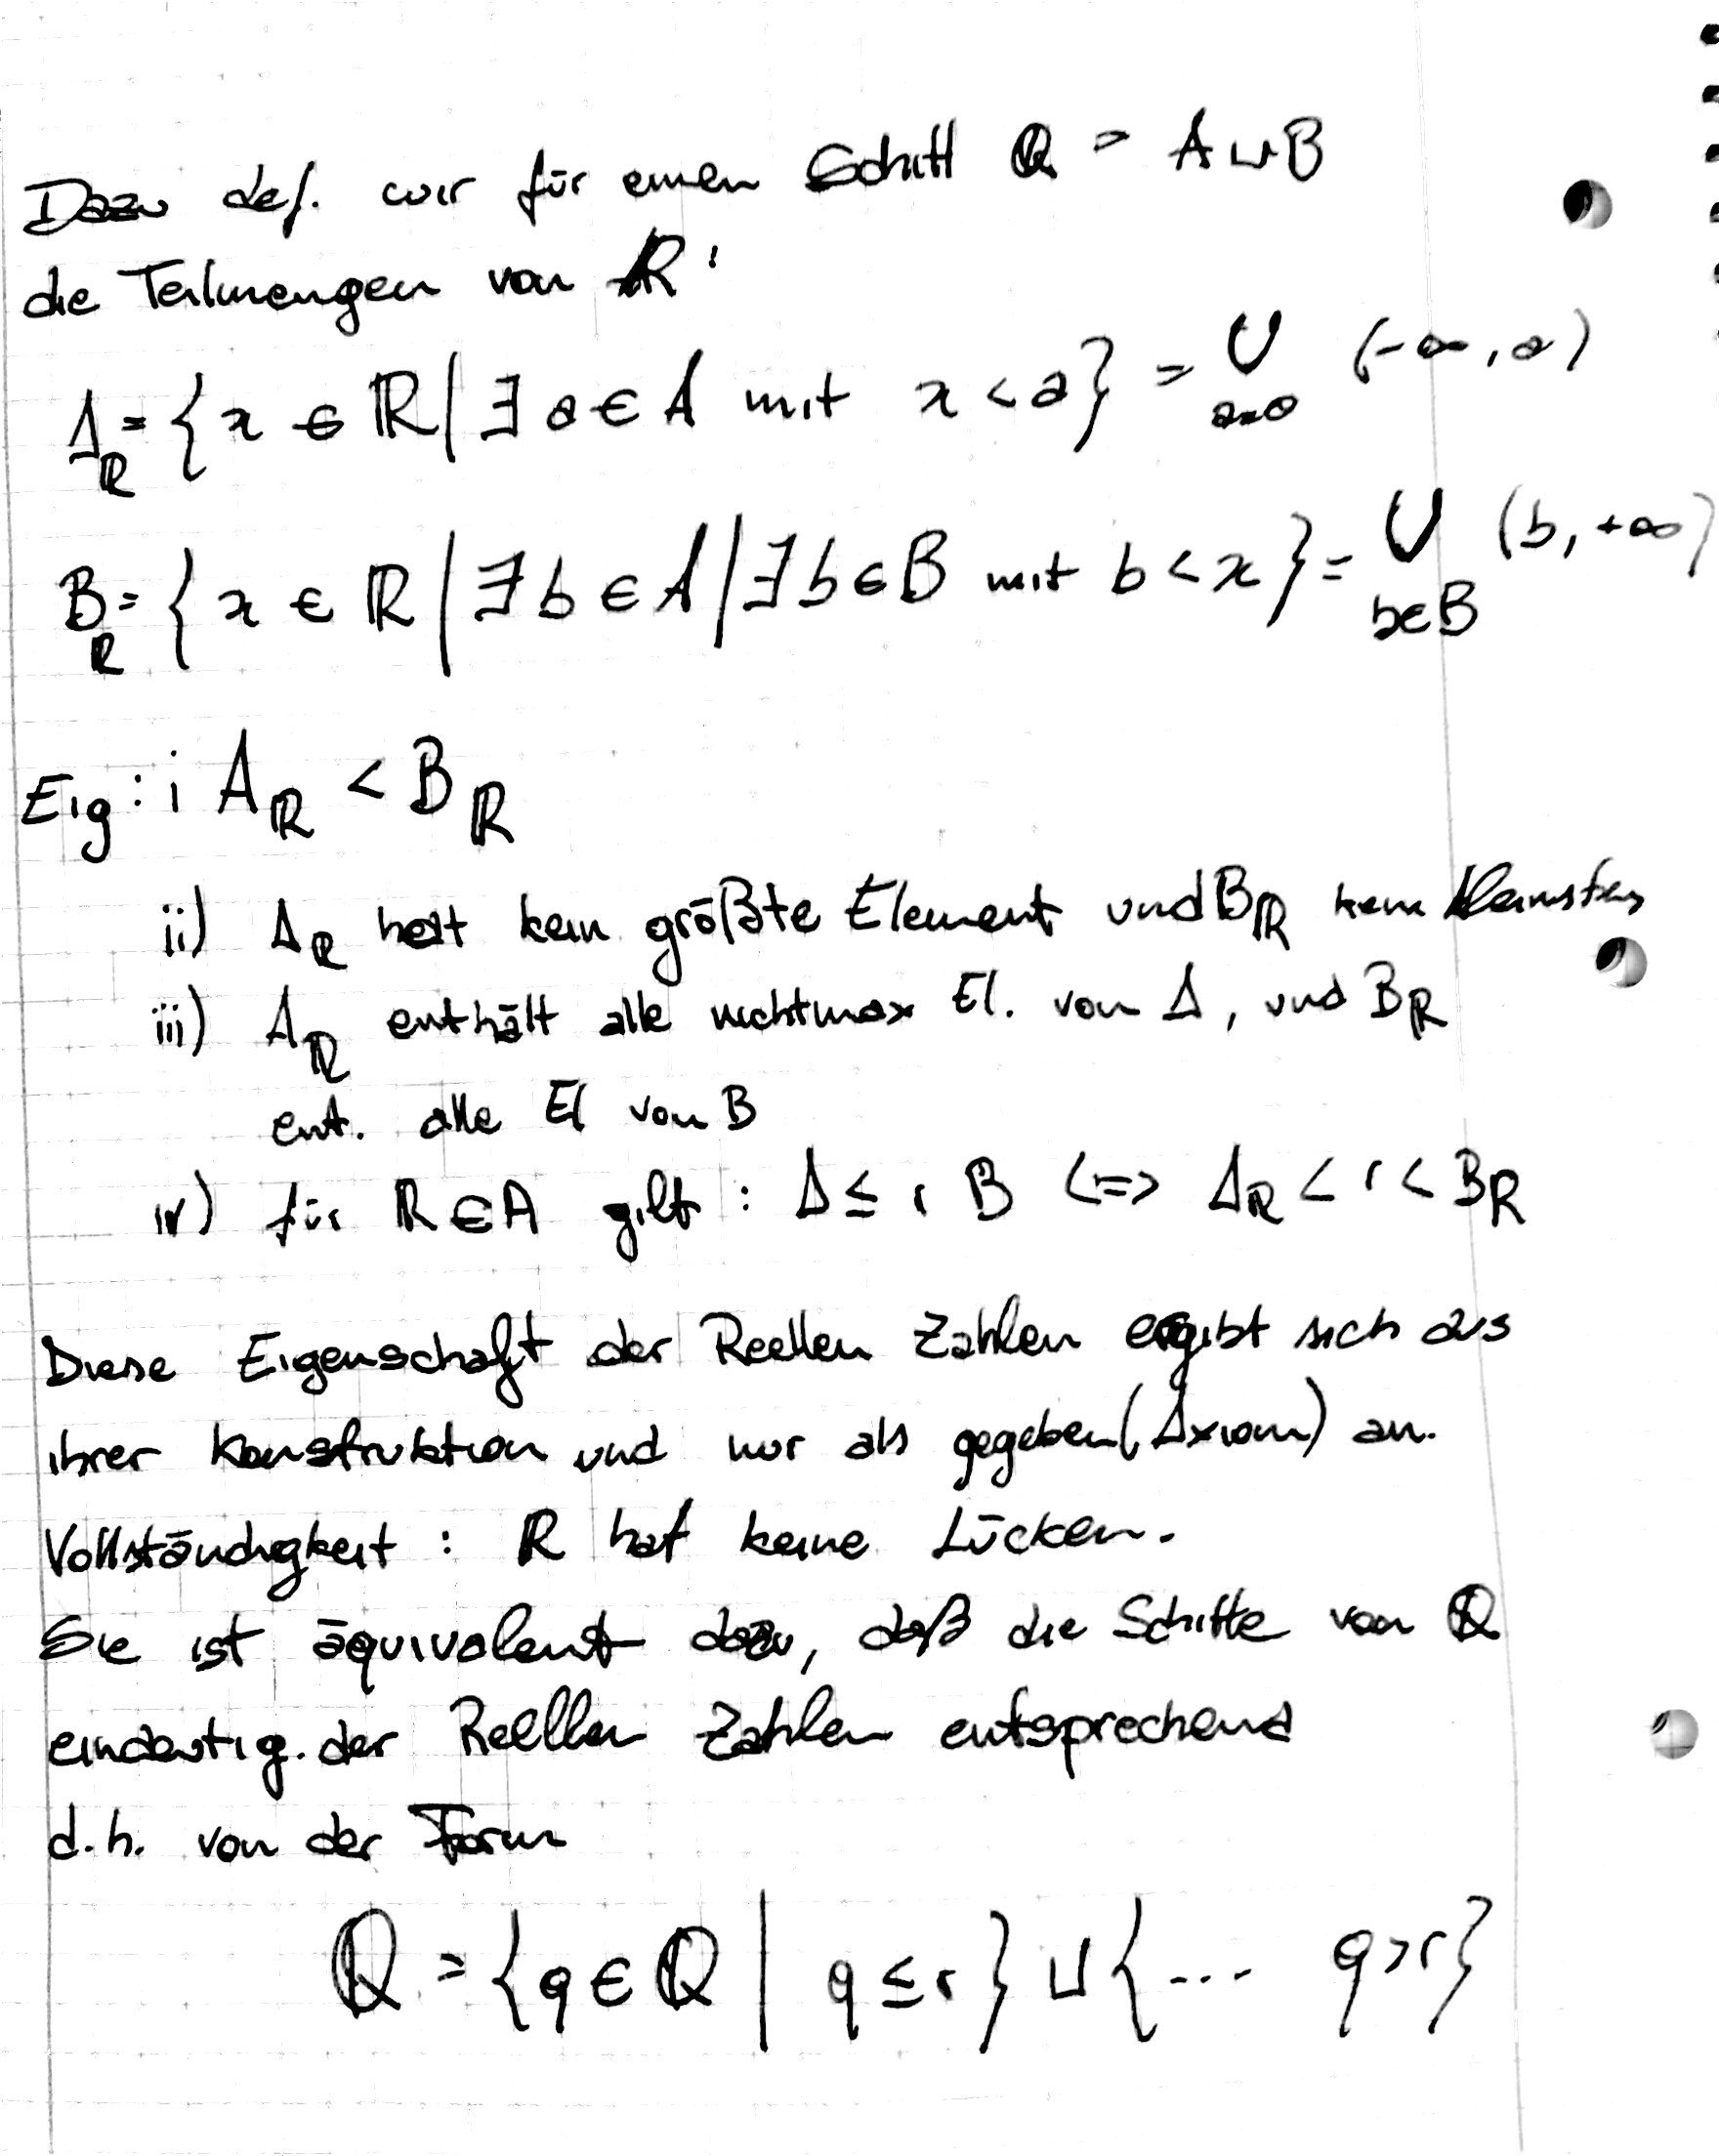 Dazu def. wir für einen Schitt ℚ = A ⊔ B
die Teilmengen von ℝ:
A_ℝ = { x ∈ ℝ | ∃ a ∈ A mit x < a } = ⋃_{a=0} (-∞, a)
B_ℝ = { x ∈ ℝ | ∃ b ∈ A | ∃ b ∈ B mit b < x } = ⋃_{b∈B} (b, +∞)
Eig : i A_ℝ < B_ℝ
ii) A_ℝ hat kein größte Element und B_ℝ kein kleinstes
iii) A_ℝ enthält alle nichtmax El. von A, und B_ℝ
ent. alle El von B
iv) für ℝ ∈ A gilt : A ≤ r B <=> A_ℝ < r < B_ℝ
Diese Eigenschaft der Reellen Zahlen ergibt sich aus
ihrer Konstruktion und nur als gegeben (Axiom) an.
Vollständigkeit : ℝ hat keine Lücken.
Sie ist äquivalent dazu, daß die Schitte von ℚ
eindeutig. der Reellen Zahlen entsprechend
d.h. von der Form
ℚ = { q ∈ ℚ | q ≤ r } ⊔ { ... q > r }